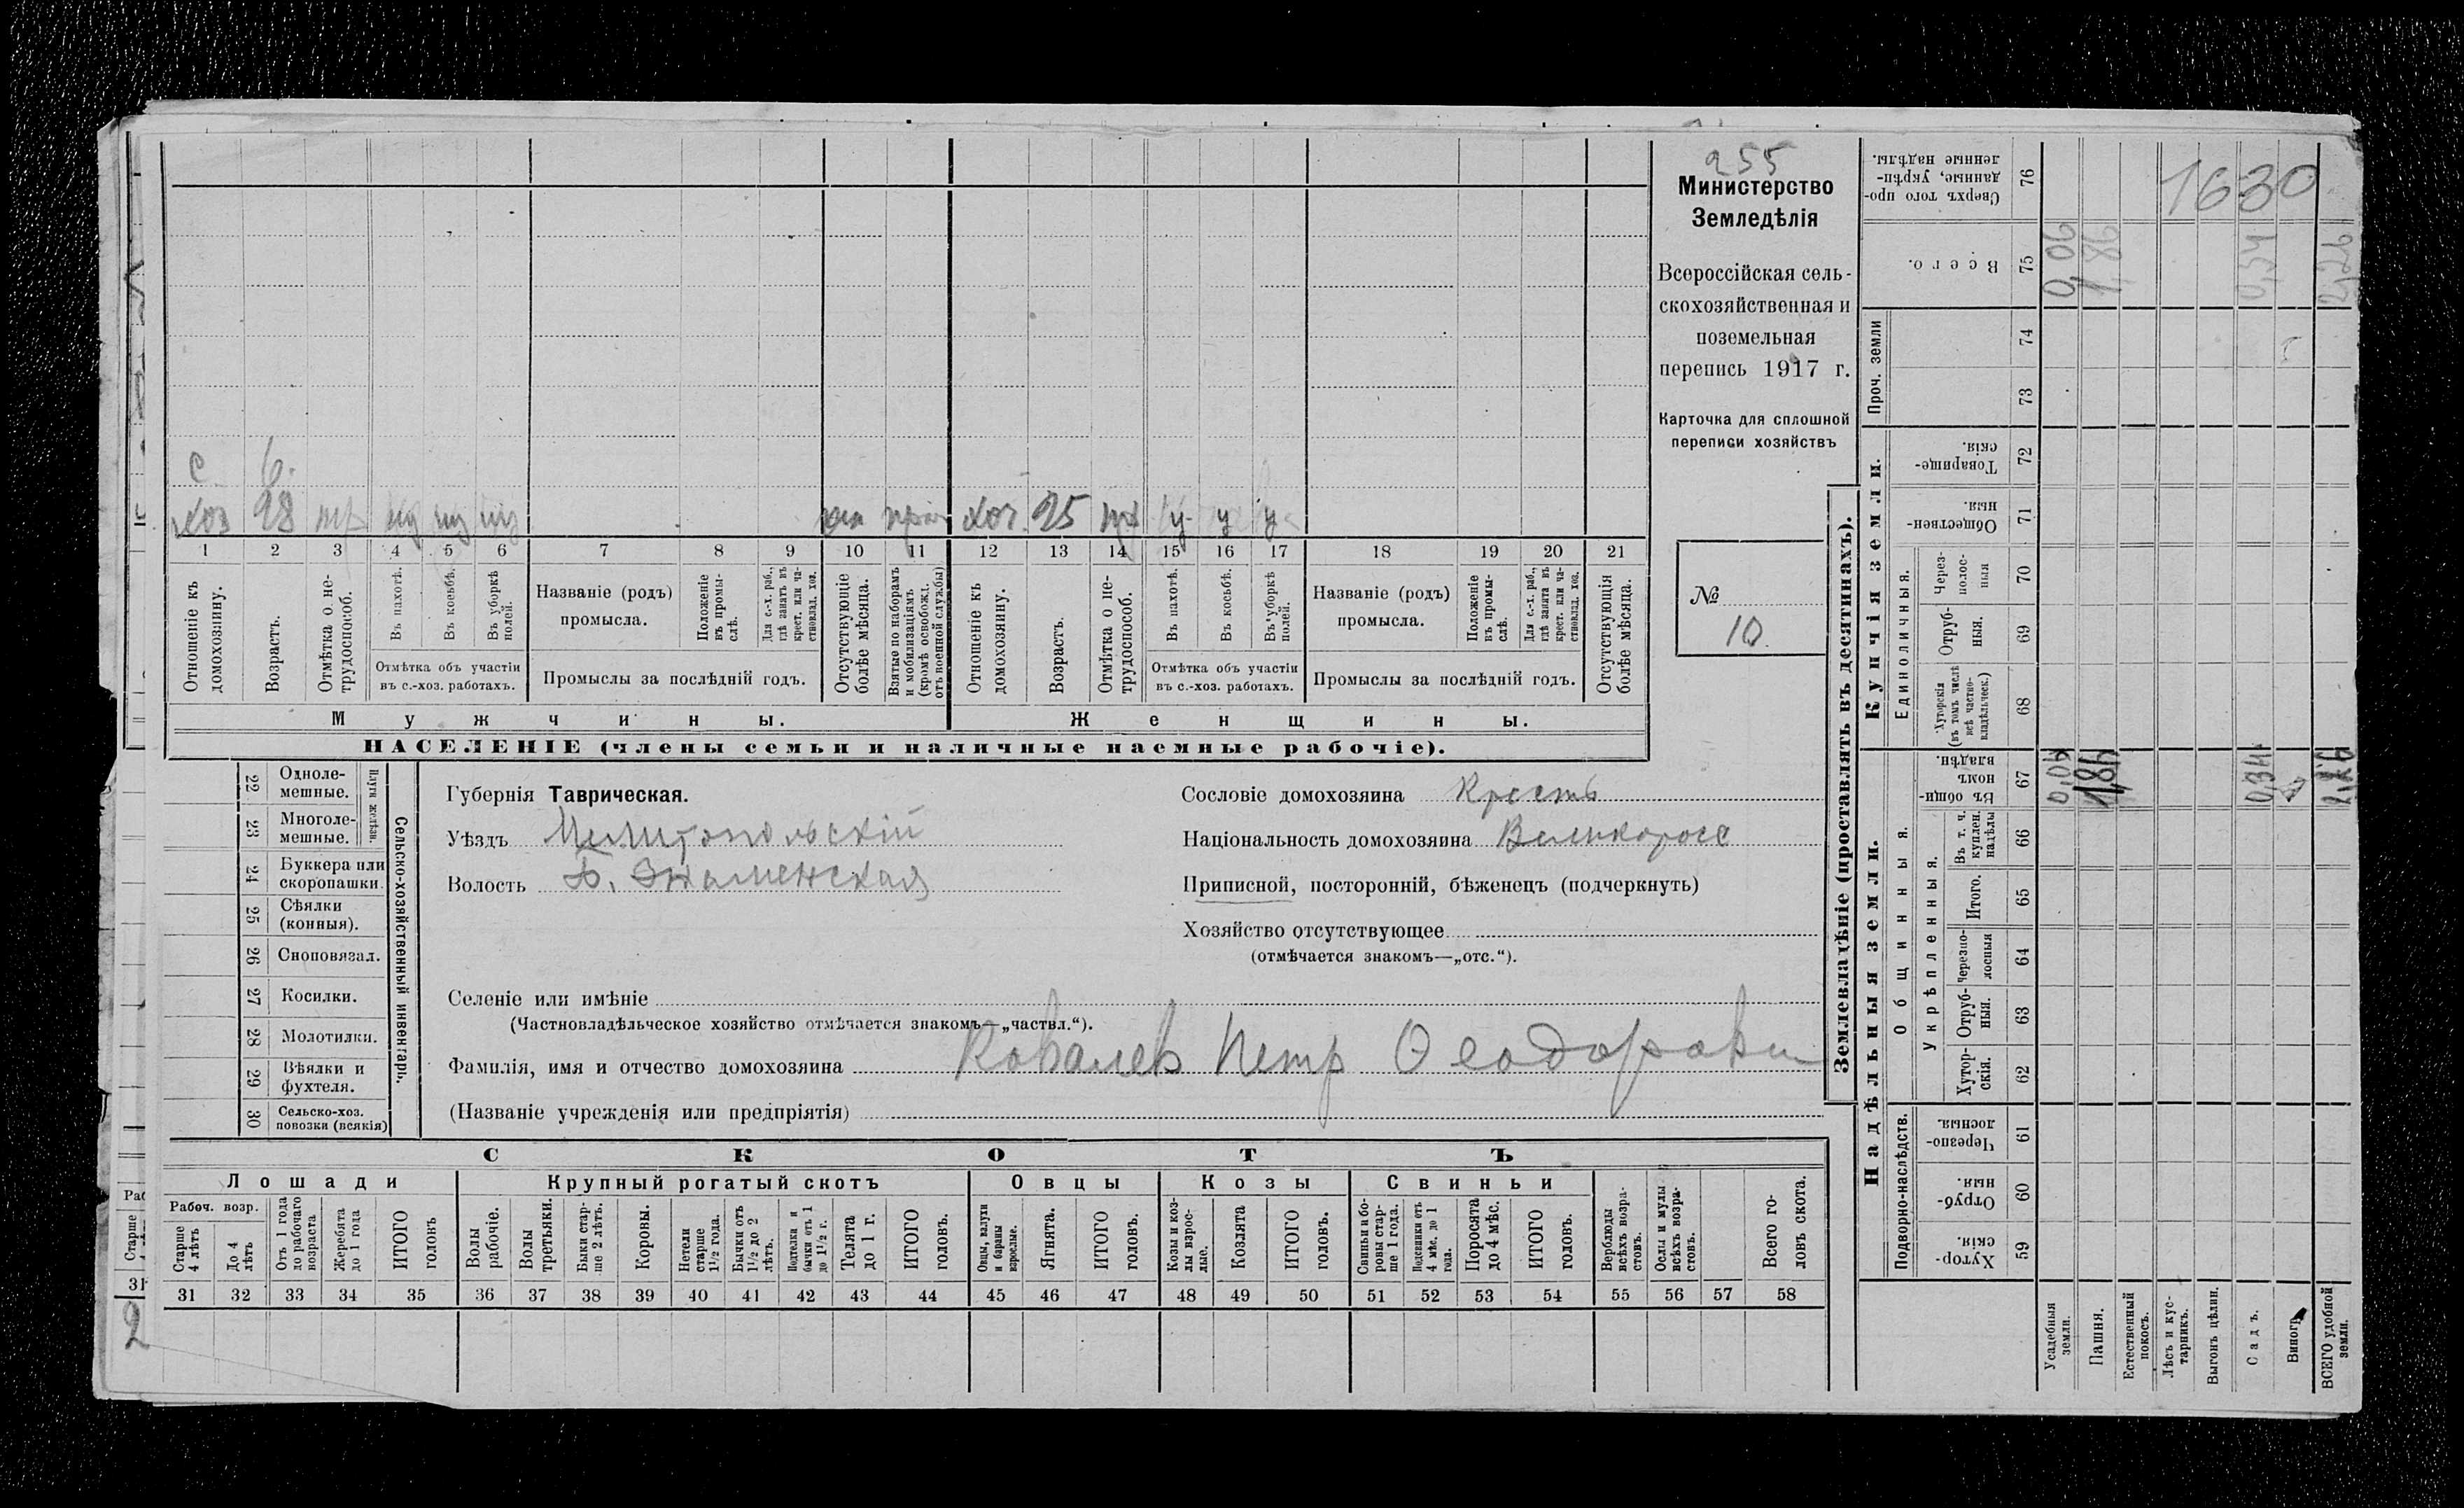 255
Министерство
Земледѣлія
Всероссійская сель-
скохозяйственная и
поземельная
перепись 1917 г.
Карточка для сплошной
переписи хозяйствъ
№
10.
с 6.
хоз 28
хоз. 25 у у у
1 2 3 4 5 6 7 8 9 10 11 12 13 14 15 16 17 18 19 20 21
Отношеніе къ домохозяину.
Возрастъ.
Отмѣтка о не-трудоспособ.
Въ пахотѣ.
Въ косьбѣ.
Въ уборкѣ полей.
Отмѣтка объ участіи
въ с.-хоз. работахъ.
Названіе (родъ)
промысла.
Положеніе въ промы-слѣ.
Для с.-х. раб., гдѣ занятъ въ крест. или ча-стновлад. хоз.
Промыслы за послѣдній годъ.
Отсутствующіе болѣе мѣсяца.
Взятые по наборамъ и мобилизаціямъ (кромѣ освобожд. отъ военной службы)
Отношеніе къ домохозяину.
Возрастъ.
Отмѣтка о не-трудоспособ.
Въ пахотѣ.
Въ косьбѣ.
Въ уборкѣ полей.
Отмѣтка объ участіи
въ с.-хоз. работахъ.
Названіе (родъ)
промысла.
Положеніе въ промы-слѣ.
Для с.-х. раб., гдѣ занята въ крест. или ча-стновлад. хоз.
Промыслы за послѣдній годъ.
Отсутствующія болѣе мѣсяца.
Мужчины.
Женщины.
НАСЕЛЕНІЕ (члены семьи и наличные наемные рабочіе).
22 Одноле-мешные.
23 Многоле-мешные.
Плуги желѣзн.
24 Буккера или скоропашки.
25 Сѣялки (конныя).
26 Сноповязал.
27 Косилки.
28 Молотилки.
29 Вѣялки и фухтеля.
30 Сельско-хоз. повозки (всякія)
Сельско-хозяйственный инвентарь.
Губернія Таврическая.
Уѣздъ Мелитопольскій
Волость Б. Знаменская
Сословіе домохозяина Крестъ
Національность домохозяина Великоросс
Приписной, посторонній, бѣженецъ (подчеркнуть)
Хозяйство отсутствующее
(отмѣчается знакомъ—„отс.“).
Селеніе или имѣніе
(Частновладѣльческое хозяйство отмѣчается знакомъ—„частвл.“).
Фамилія, имя и отчество домохозяина Ковалев Петр Ѳеодорович
(Названіе учрежденія или предпріятія)
СКОТЪ
Лошади
Рабоч. возр.
Старше 4 лѣтъ
До 4 лѣтъ
Отъ 1 года до рабочаго возраста
Жеребята до 1 года
ИТОГО головъ
Крупный рогатый скотъ
Волы рабочіе.
Волы третьяки.
Быки стар-ше 2 лѣтъ.
Коровы.
Нетели старше 1½ года.
Бычки отъ 1½ до 2 лѣтъ.
Подтелки и бычки отъ 1 до 1½ г.
Телята до 1 г.
ИТОГО головъ.
Овцы
Овцы, валухи и бараны взрослые.
Ягнята.
ИТОГО головъ.
Козы
Козы и коз-лы взрос-лые.
Козлята
ИТОГО головъ.
Свиньи
Свиньи и бо-ровы стар-ше 1 года.
Подсвинки отъ 4 мѣс. до 1 года.
Поросята до 4 мѣс.
ИТОГО головъ.
Верблюды всѣхъ возра-стовъ.
Ослы и мулы всѣхъ возра-стовъ.
Всего го-ловъ скота.
31 32 33 34 35 36 37 38 39 40 41 42 43 44 45 46 47 48 49 50 51 52 53 54 55 56 57 58
Раб
Старше
31
2
Землевладѣніе (проставлять въ десятинахъ).
1630
76 Сверхъ того про-данные, укрѣп-ленные надѣлы.
75 Всего. 0,06 1,86 0,34 2,26
Проч. земли
74
73
Купчія земли.
72 Товарище-скія.
71 Обществен-ныя
Единоличныя.
70 Через-полос-ныя
69 Отруб-ныя.
68 Хуторскія (въ томъ числѣ всѣ частно-владѣльческ.)
Надѣльныя земли.
Общинныя.
67 Въ общин-номъ владѣн. 0,06 1,86 0,34 2,26
Укрѣпленныя.
66 Въ т. ч. куплен. надѣлы
65 Итого.
64 Черезпо-лосныя
63 Отруб-ныя.
62 Хутор-скія.
Подворно-наслѣдств.
61 Черезпо-лосныя.
60 Отруб-ныя.
59 Хутор-скія.
Усадебныя земли.
Пашня.
Естественный покосъ.
Лѣсъ и кус-тарникъ.
Выгонъ цѣлин.
Садъ.
Виногр.
ВСЕГО удобной земли.